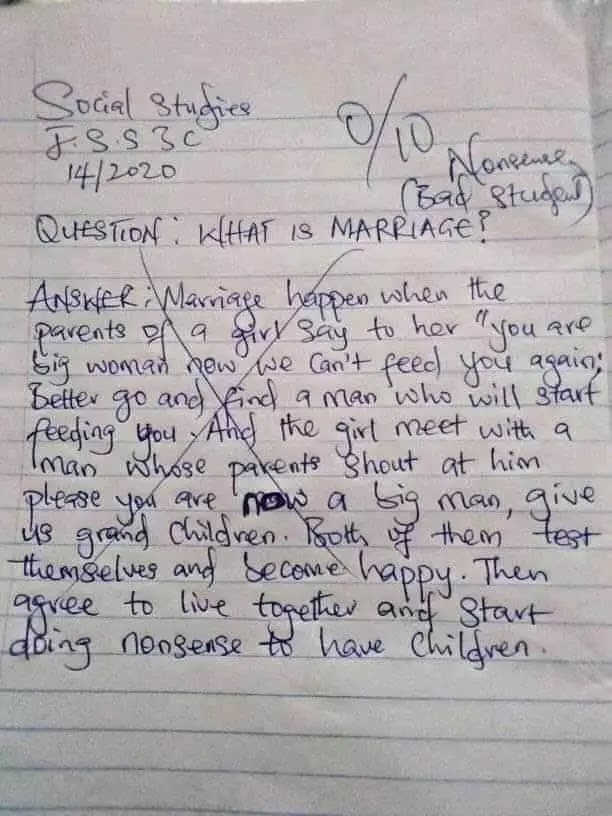 Social Studies
J.S.S 3C
14/2020
0/10
Nonsense
(Bad Student)
QUESTION: WHAT IS MARRIAGE?
ANSWER: Marriage happen when the
parents of a girl say to her "you are
big woman now we can't feed you again;
Better go and find a man who will start
feeding you. And the girl meet with a
man whose parents shout at him
please you are now a big man, give
us grand children. Both of them test
themselves and become happy. Then
agree to live together and start
doing nonsense to have children.